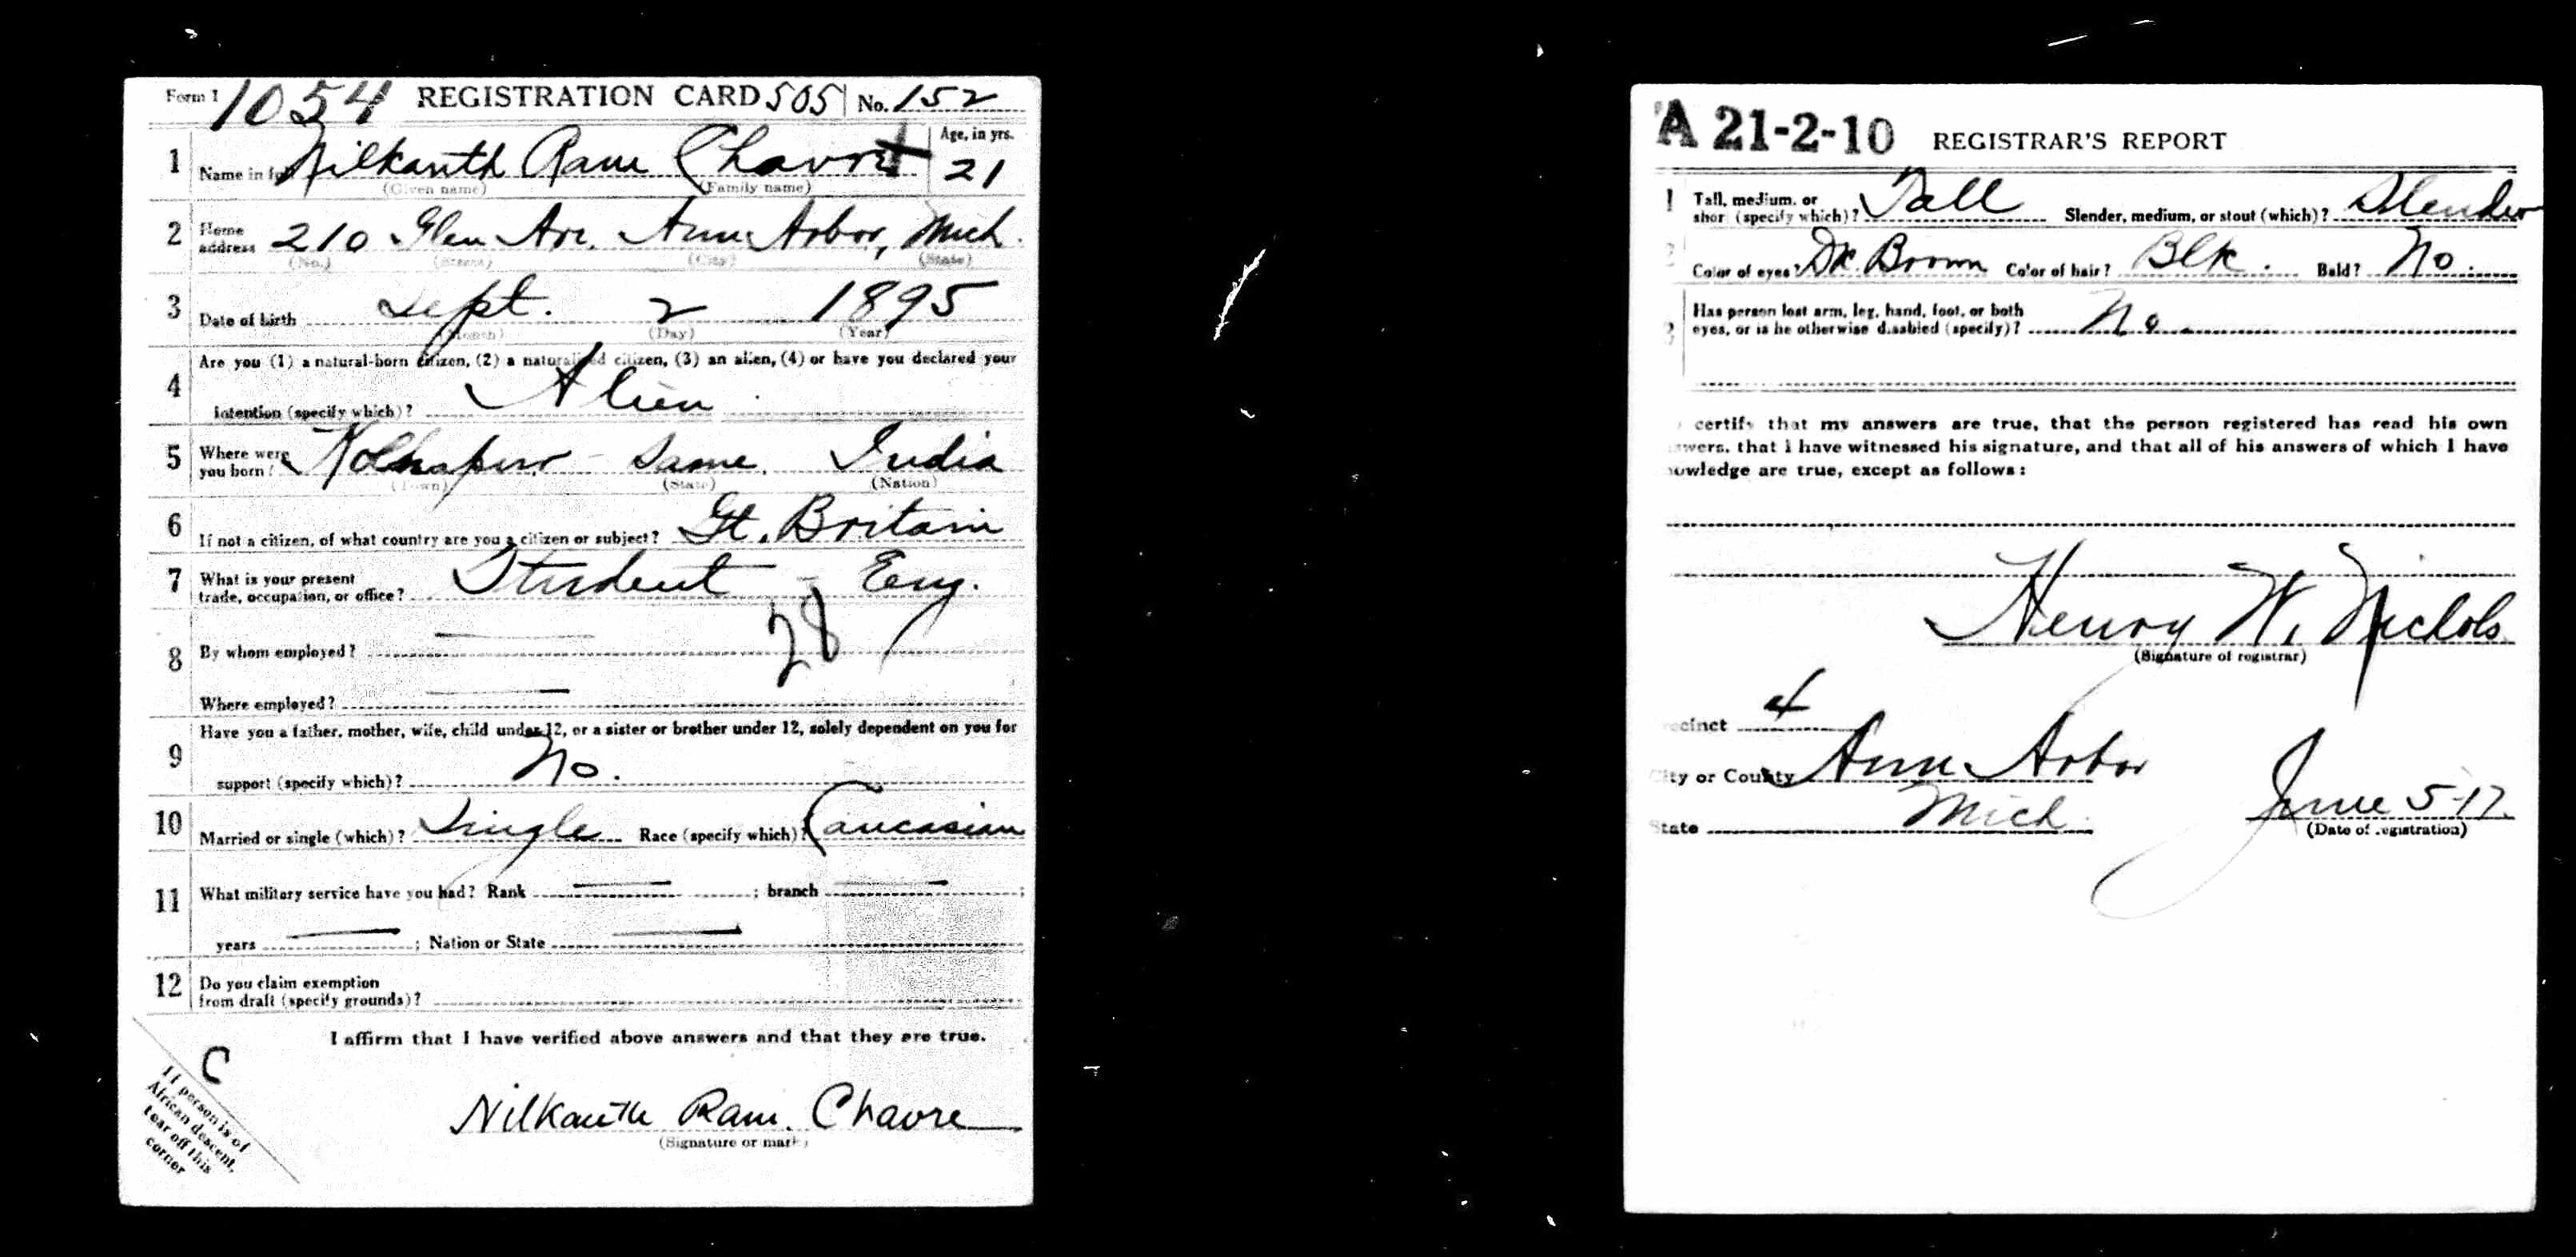 Form 1 1054 REGISTRATION CARD 505 No. 152
1 Name in full Nilkanth Ram Chavre Age, in yrs. 21
(Given name) (Family name)
2 Home address 210 Glen Av. Ann Arbor, Mich.
(No.) (Street) (City) (State)
3 Date of birth Sept. 2 1895
(Month) (Day) (Year)
4 Are you (1) a natural-born citizen, (2) a naturalized citizen, (3) an alien, (4) or have you declared your
intention (specify which)? Alien
5 Where were you born? Kolhapur - Same, India
(Town) (State) (Nation)
6 If not a citizen, of what country are you a citizen or subject? Gt. Britain
7 What is your present
trade, occupation, or office? Student - Eng.
28
8 By whom employed?
Where employed?
9 Have you a father, mother, wife, child under 12, or a sister or brother under 12, solely dependent on you for
support (specify which)? No.
10 Married or single (which)? Single Race (specify which)? Caucasian
11 What military service have you had? Rank ; branch ;
years ; Nation or State
12 Do you claim exemption
from draft (specify grounds)?
I affirm that I have verified above answers and that they are true.
C
If person is of
African descent,
tear off this
corner
Nilkanth Ram. Chavre
(Signature or mark)
A 21-2-10 REGISTRAR'S REPORT
1 Tall, medium, or
shor (specify which)? Tall Slender, medium, or stout (which)? Slender
2 Color of eyes? Dk. Brown Color of hair? Blk. Bald? No.
3 Has person lost arm, leg, hand, foot, or both
eyes, or is he otherwise disabled (specify)? No
certify that my answers are true, that the person registered has read his own
swers, that I have witnessed his signature, and that all of his answers of which I have
owledge are true, except as follows:
Henry W. Nichols
(Signature of registrar)
ecinct 4
City or County Ann Arbor
State Mich. June 5-17.
(Date of registration)